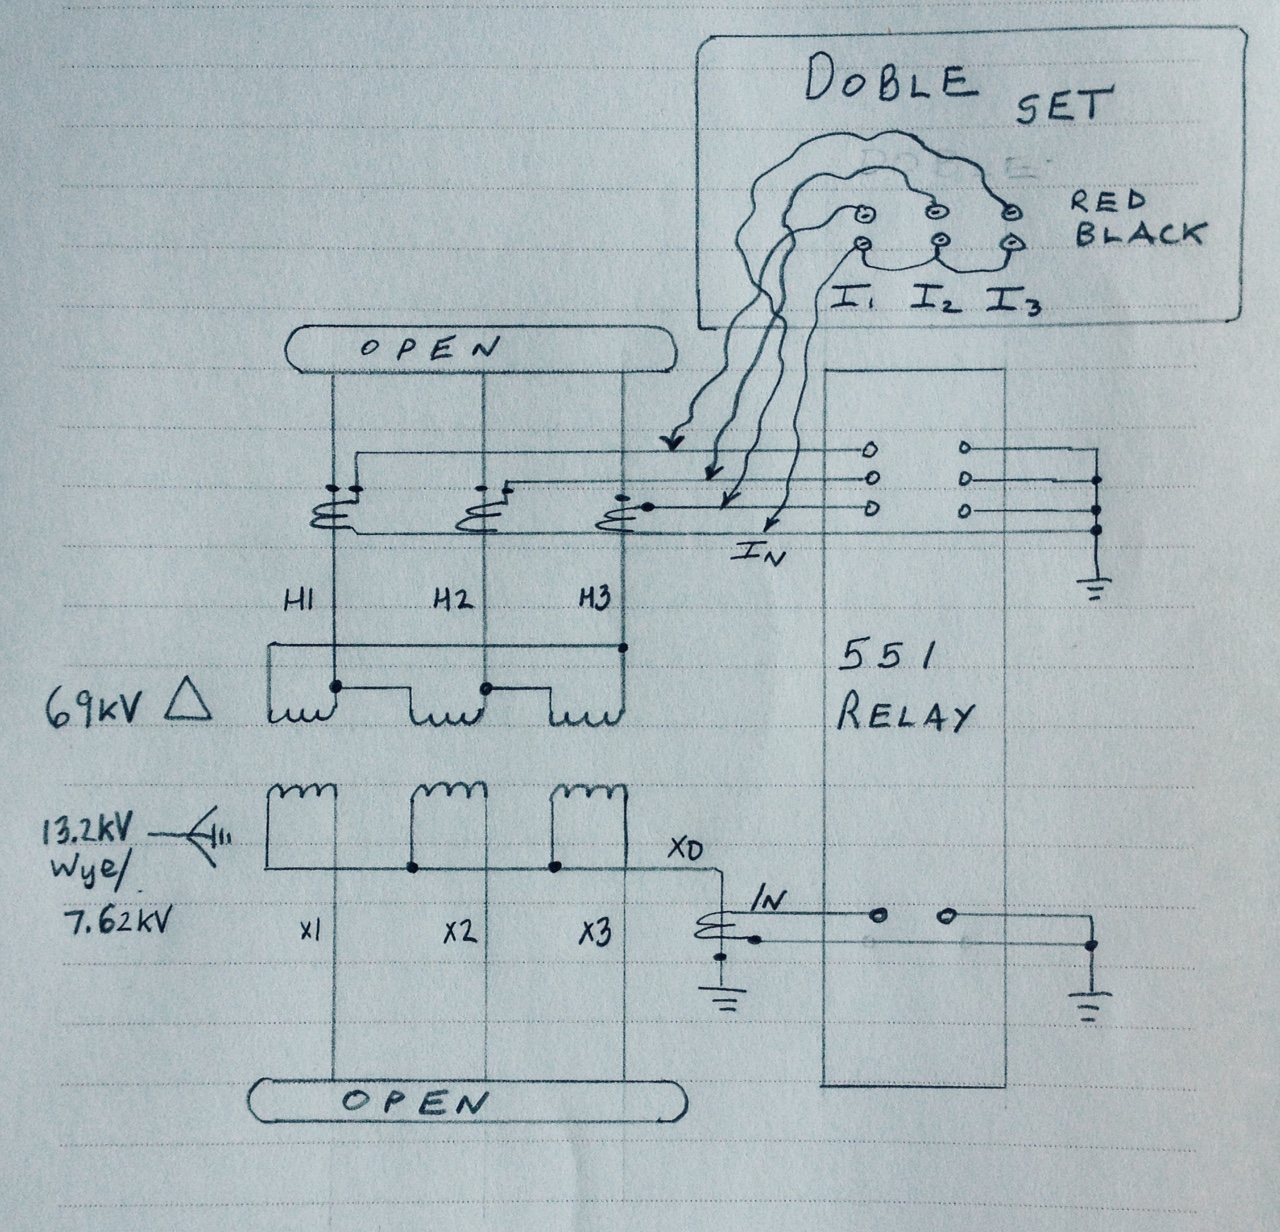 DOBLE SET
RED
BLACK
I1 I2 I3
OPEN
IN
H1 H2 H3
551
RELAY
69kV Δ
13.2kV
Wye/
7.62kV
XO
IN
X1 X2 X3
OPEN